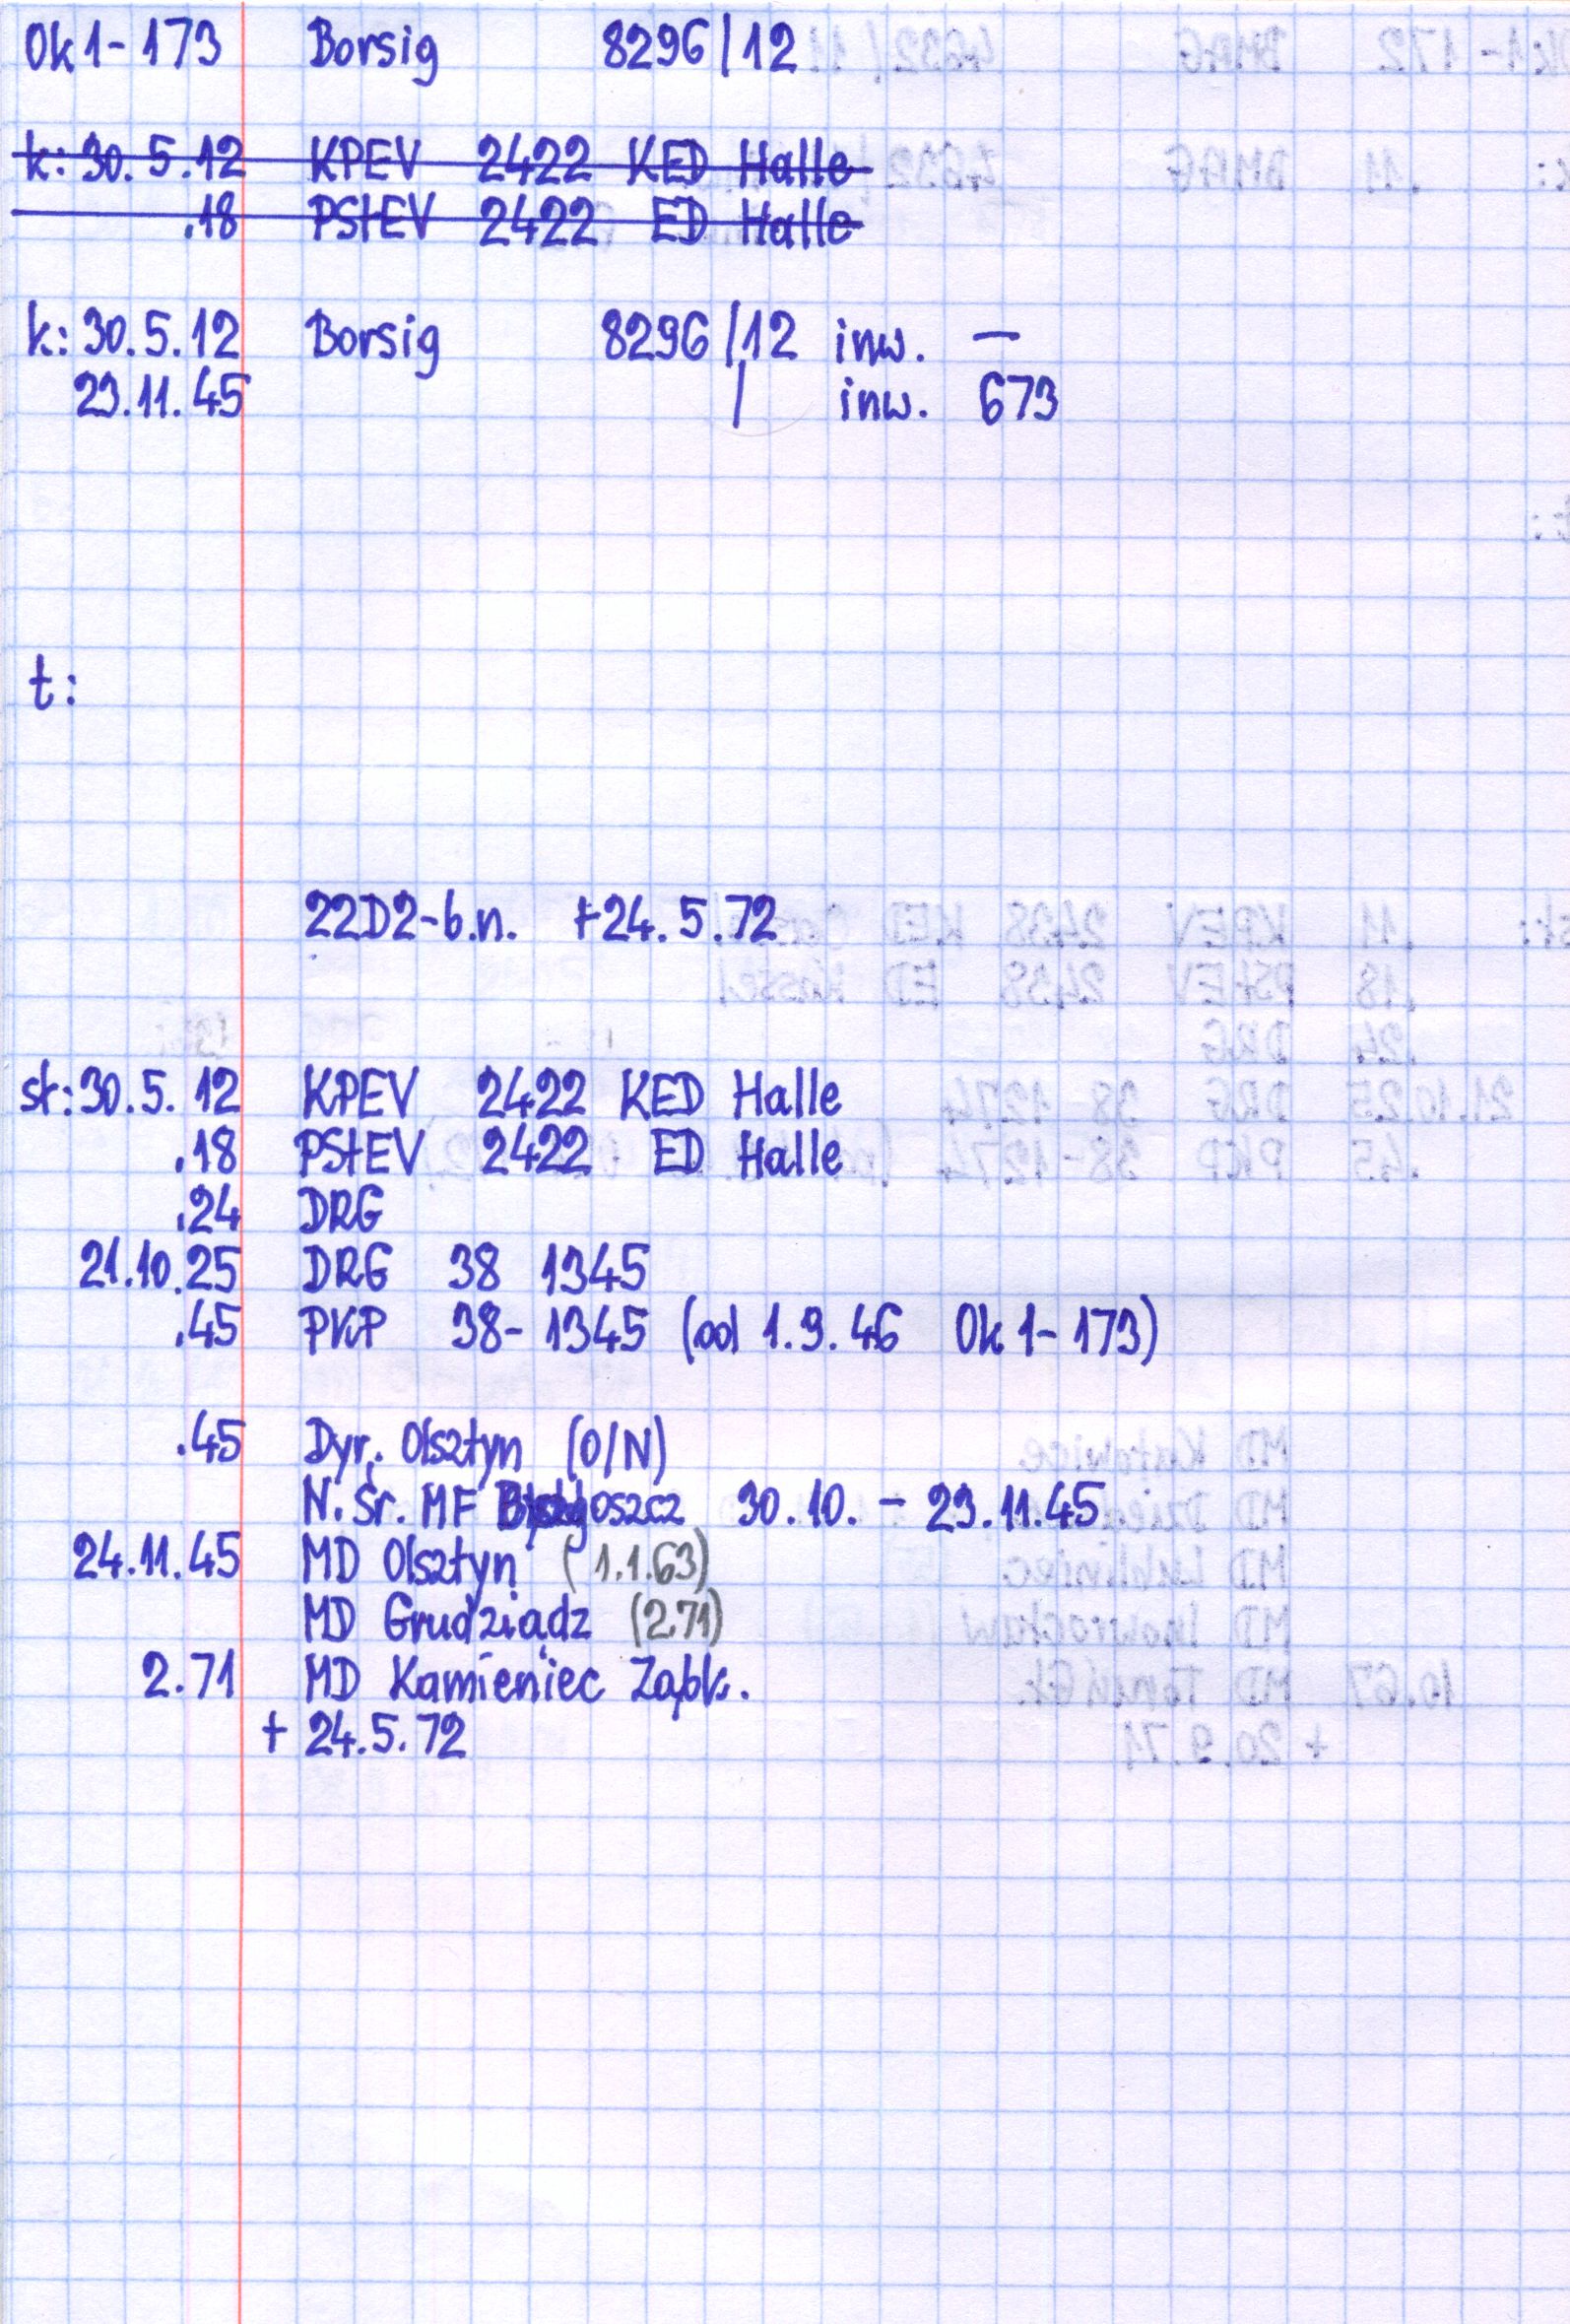 Ok1-173 Borsig 8296/12
k: 30.5.12 KPEV 2422 KED Halle
.18 PStEV 2422 ED Halle
k: 30.5.12 Borsig 8296/12 inw. —
29.11.45 / inw. 673
t:
22D2-b.n. +24.5.72
sk: 30.5.12 KPEV 2422 KED Halle
.18 PStEV 2422 ED Halle
.24 DRG
21.10.25 DRG 38 1345
.45 PKP 38-1345 (od 1.9.46 Ok1-173)
.45 Dyr. Olsztyn (O/N)
N. śr. MF Bydgoszcz 30.10. - 29.11.45
24.11.45 MD Olsztyn (1.1.63)
MD Grudziądz (2.71)
2.71 MD Kamieniec Ząbk.
+ 24.5.72